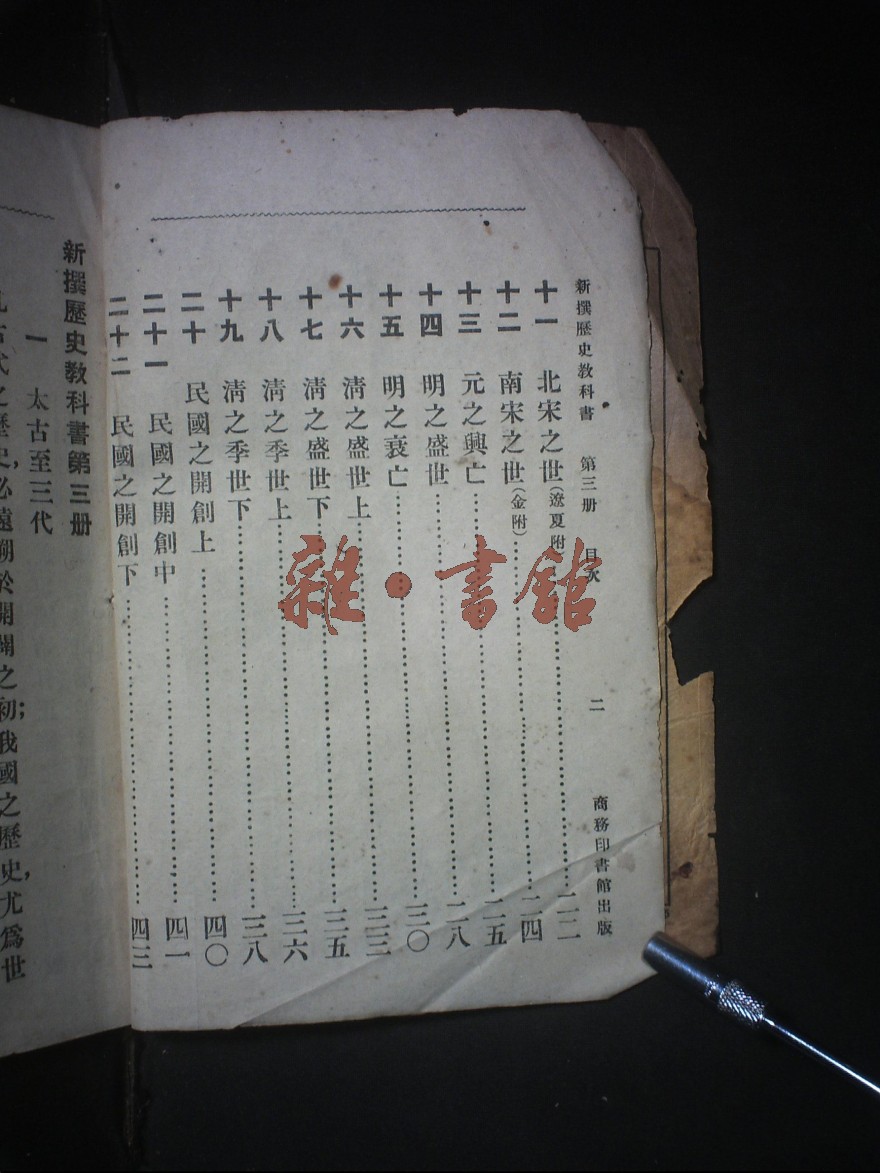 新撰歷史教科書 第三册 目次 二 商務印書館出版
十一 北宋之世(遼夏附)……二二
十二 南宋之世(金附)……二四
十三 元之興亡……二五
十四 明之盛世……二八
十五 明之衰亡……三〇
十六 清之盛世上……三三
十七 清之盛世下……三五
十八 清之季世上……三六
十九 清之季世下……三八
二十 民國之開創上……四〇
二十一 民國之開創中……四一
二十二 民國之開創下……四三
新撰歷史教科書第三册
一 太古至三代
古代之歷史,必遠溯於開闢之初;我國之歷史,尤爲世
雜·書館